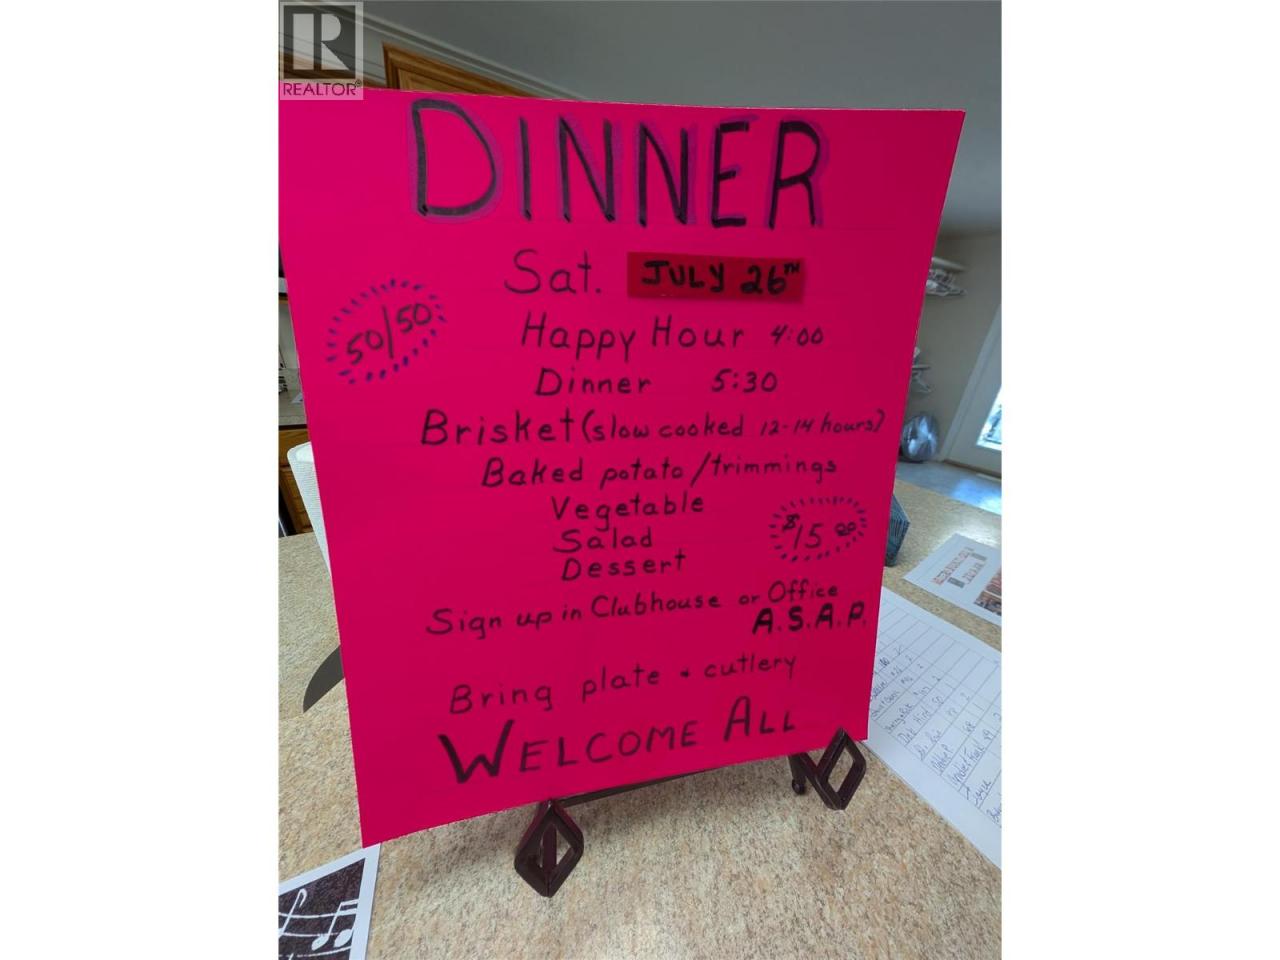 REALTOR®
DINNER
Sat. JULY 26TH
50/50
Happy Hour 4:00
Dinner 5:30
Brisket (slow cooked 12-14 hours)
Baked potato/trimmings
Vegetable
Salad
Dessert
$15.00
Sign up in Clubhouse or Office
A.S.A.P.
Bring plate + cutlery
WELCOME ALL